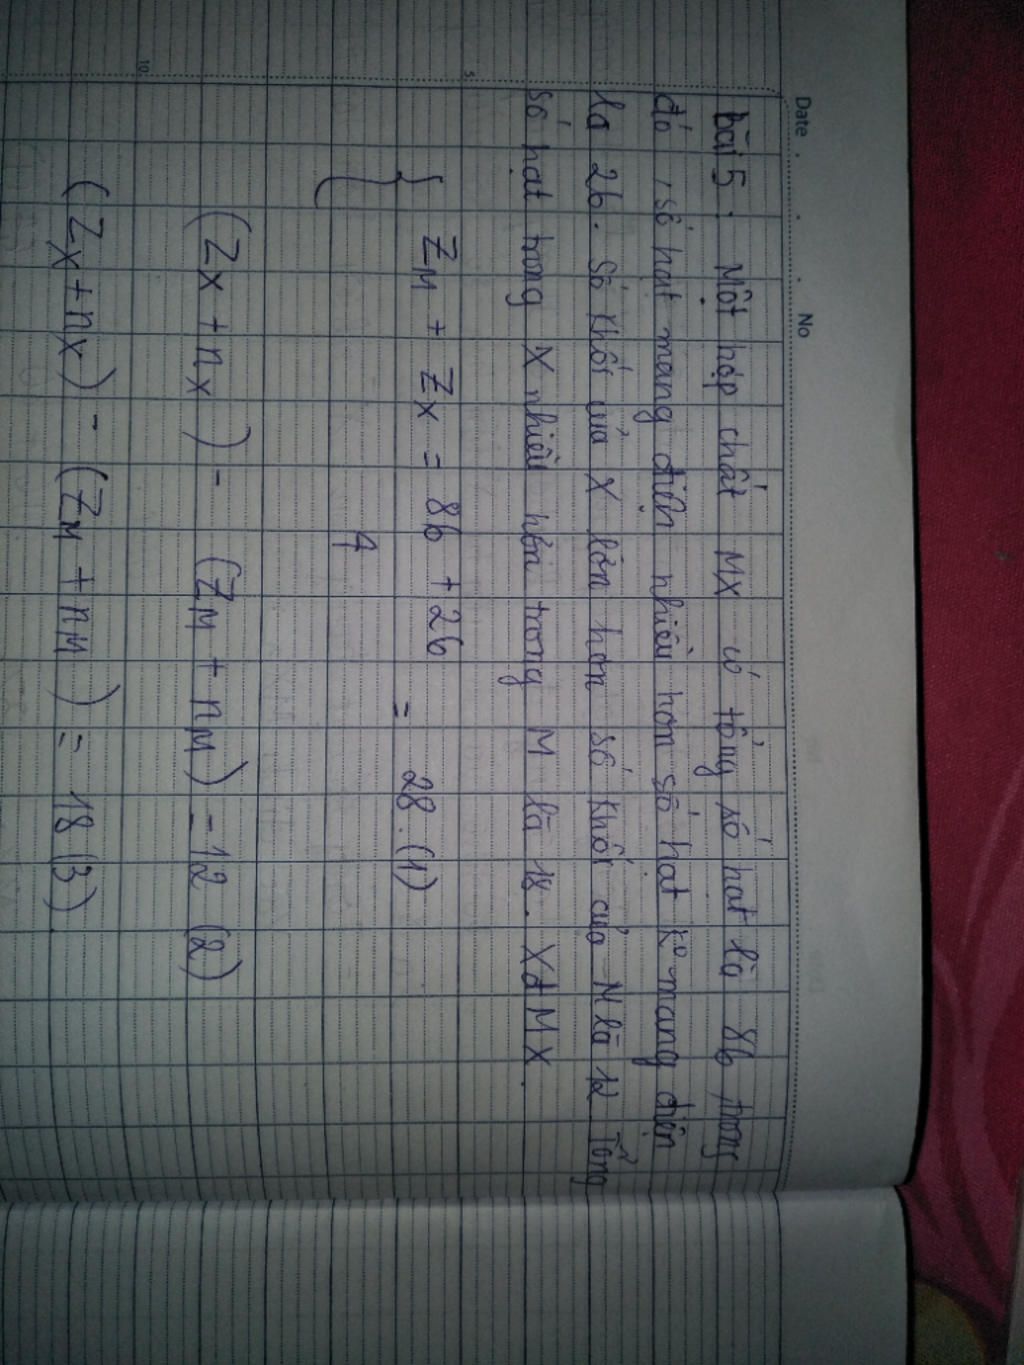 Date No
Bài 5: Một hợp chất MX có tổng số hạt là 86 trong
đó, số hạt mang điện nhiều hơn số hạt ko mang điện
là 26. Số khối của X lớn hơn số khối của M là 12 Tổng
5
số hạt trong X nhiều hơn trong M là 18. Xđ MX.
ZM + ZX = 86 + 26 = 28. (1)
4
(ZX + nX) - (ZM + nM) = 12 (2)
10
(ZX + nX) - (ZM + nM) = 18 (3)